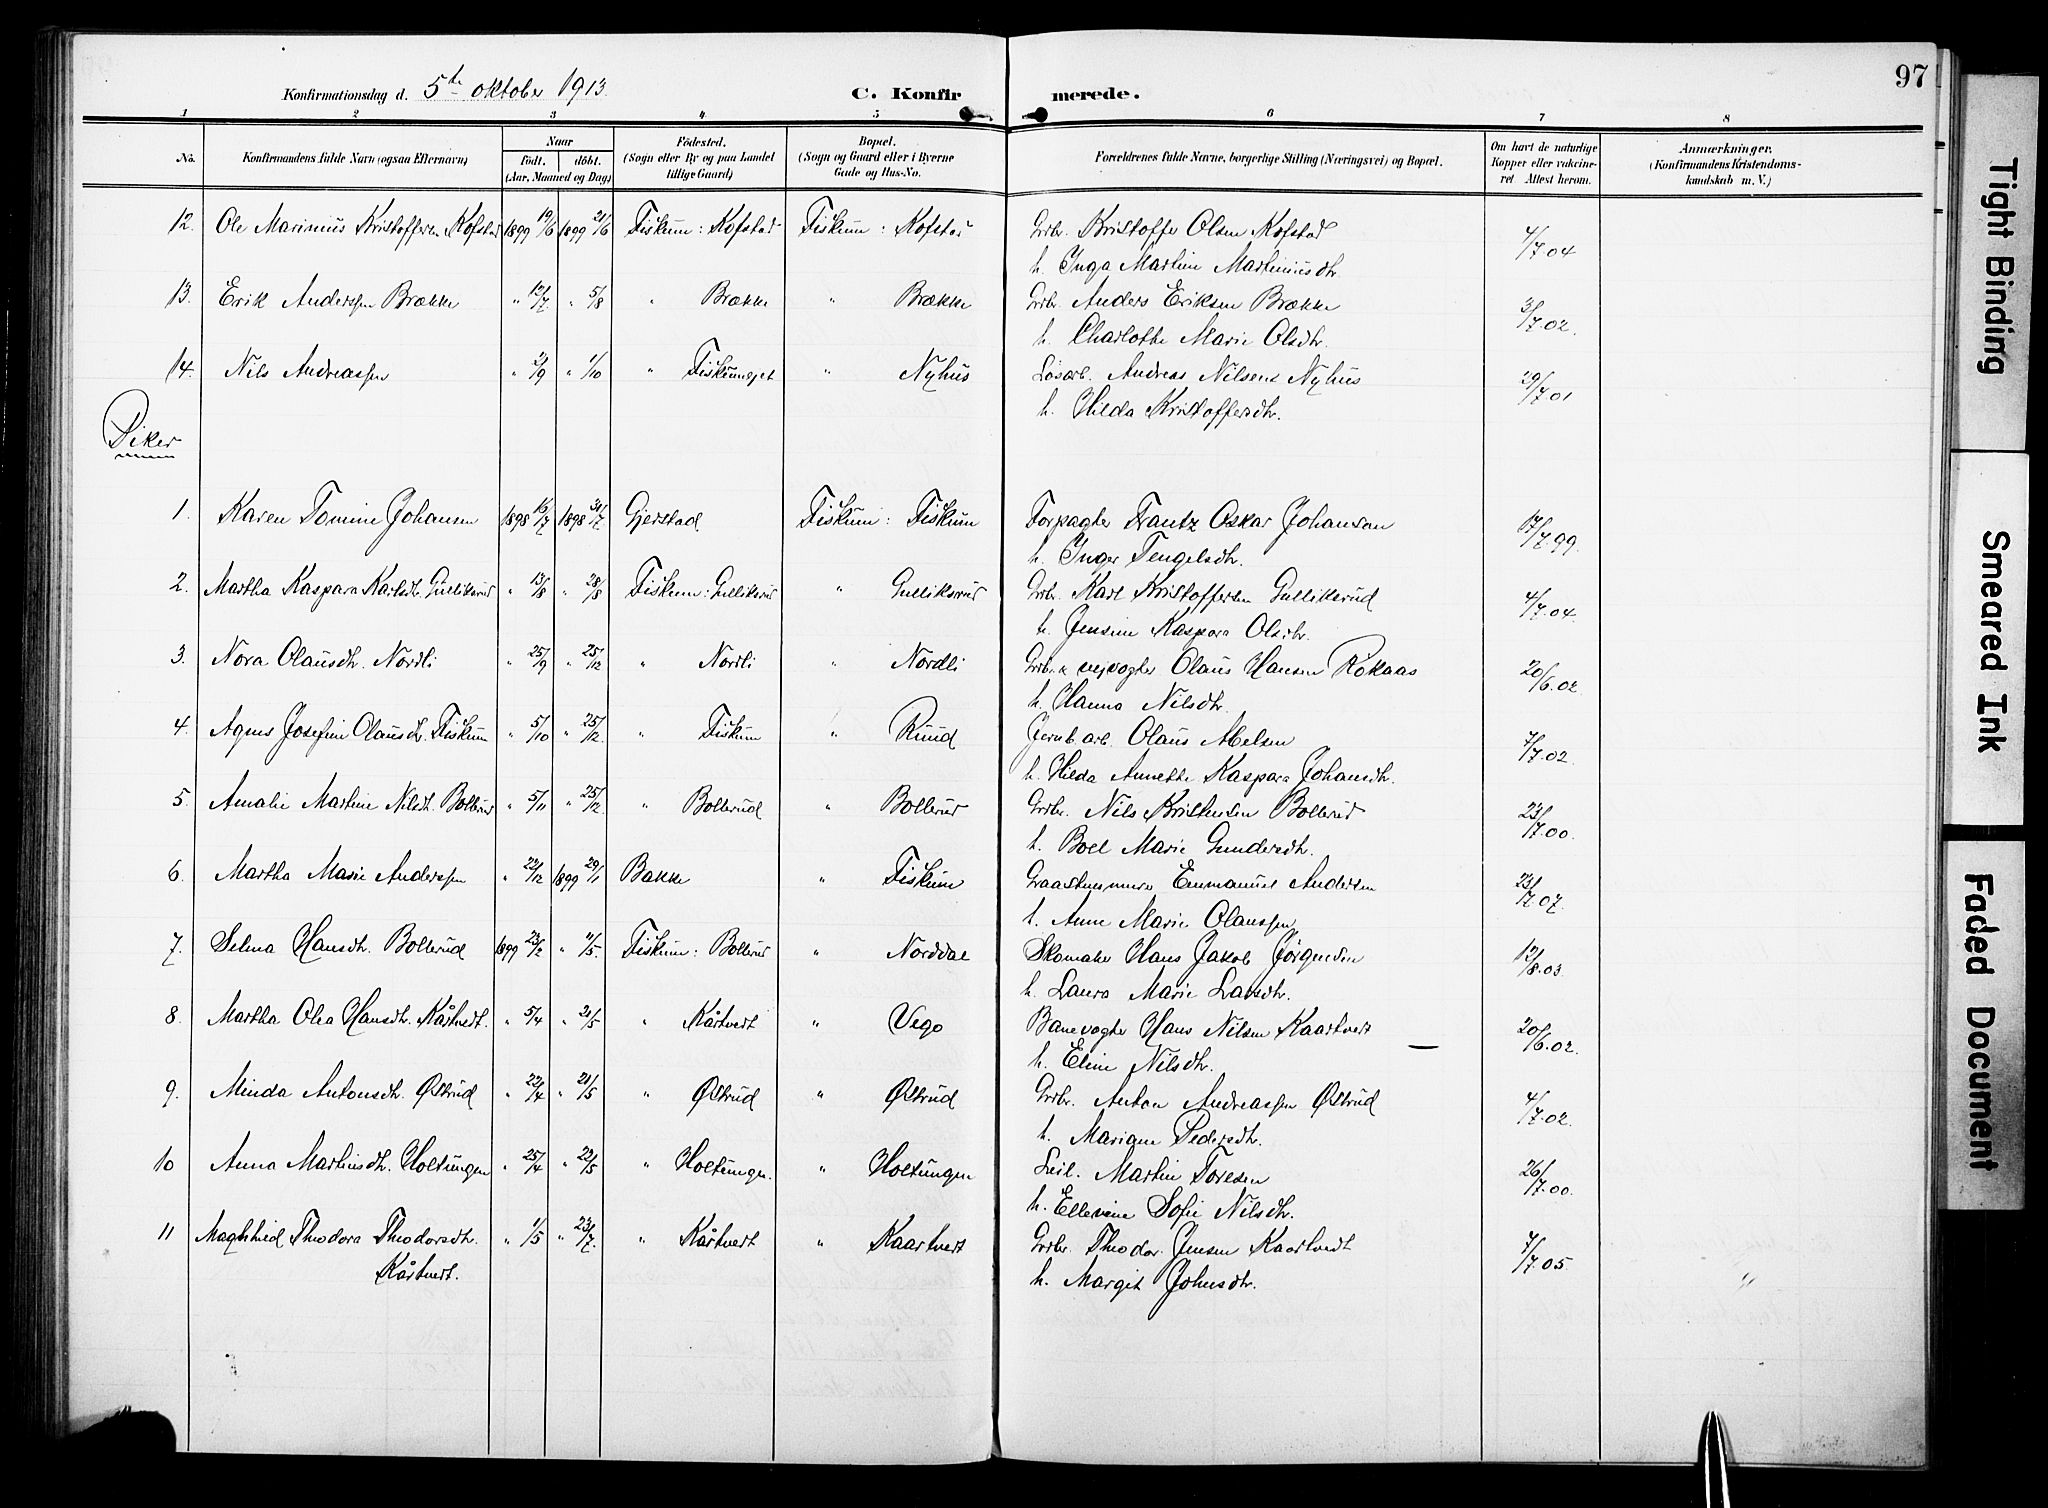 97
Konfirmationsdag d. 5te oktober 1913.
C. Konfirmerede.
1 2 3 4 5 6 7 8
No.
Konfirmandens fulde Navn (ogsaa Efternavn)
Naar
födt. döbt.
(Aar, Maaned og Dag)
Födested.
(Sogn eller By og paa Landet
tillige Gaard)
Bopæl.
(Sogn og Gaard eller i Byerne
Gade og Hus-No.
Forældrenes fulde Navne, borgerlige Stilling (Næringsvei) og Bopæl.
Om havt de naturlige
Kopper eller vakcine-
ret Attest herom.
Anmærkninger.
(Konfirmandens Kristendoms-
kundskab m. V.)
12. Ole Marinius Kristoffersen Kofstad 1899 19/6 1899 21/6 Fiskum: Kofstad Fiskum: Kofstad Grbr. Kristoffer Olsen Kofstad 4/7.04
h. Inga Martine Martiniusdtr.
13. Erik Anderssen Brække " 12/7 " 5/8 " Brække " Brække Grbr. Anders Eriksen Brække 3/7.02.
h. Charlotte Marie Olsdtr.
14. Nils Andreassen " 2/9 " 1/10 " Fiskumejet " Nyhus Løsarb. Andreas Nilsen Nyhus 29/7.01
h. Hilda Kristoffersdtr.
Piker
1. Karen Tomine Johansen 1898 16/7 1898 31/7. Gjerstad Fiskum: Fiskum Forpagter Frantz Oskar Johansen 17/7.99.
h. Inger Tengelsdtr.
2. Martha Kaspara Karlsdtr. Gulliksrud " 13/8 " 28/8 Fiskum: Gulliksrud " Gulliksrud Grbr. Karl Kristoffersen Gulliksrud 4/7.04.
h. Jensine Kaspara Olsdtr.
3. Nora Olausdtr. Nordli " 25/9 " 25/12 " Nordli " Nordli Grbr. & vejvogter Olaus Hansen Rokaas 20/6.02.
h. Hanna Nilsdtr.
4. Agnes Josefine Olausdtr. Fiskum " 5/10 " 25/12. " Fiskum " Ruud Jernb.arb. Olaus Abelsen 7/7.02.
h. Hilda Annette Kaspara Johansdtr.
5. Amalie Martine Nilsdtr. Bollerud " 5/11 " 25/12. " Bollerud " Bollerud Grbr. Nils Kristensen Bollerud 23/7.00.
h. Boel Marie Gundersdtr.
6. Martha Marie Anderssen " 22/12 1899 29/1 Bakke " Fiskum Graastensmurer Emmanuel Andersen 23/7.07.
h. Anne Marie Olaussen
7. Selma Hansdtr. Bollerud 1899 23/2 " /5. Fiskum: Bollerud " Norddal Skomaker Hans Jakob Jørgensen 12/8.03.
h. Laura Marie Larsdtr.
8. Martha Olea Hansdtr. Kårtvedt. " 5/4 " 21/5 " Kårtvedt " Vego Banevogter Hans Nilsen Kaartvedt 20/6.02.
h. Eline Nilsdtr.
9. Minda Antonsdtr. Østrud " 22/4 " 21/5 " Østrud " Østrud Grbr. Anton Andreassen Østrud 4/7.02.
h. Mariane Pedersdtr.
10 Anna Martinsdtr. Holtungen " 25/4 " 22/5 " Holtungen. " Holtungen Leil. Martin Toresen 26/7.00.
h. Ellevine Sofie Nilsdtr.
11 Maghhild Theodora Theodorsdtr. " 1/5 " 23/7. " Kårtvedt " Kaartvedt Grbr. Theodor Jensen Kaartvedt 7/7.05.
Kårtvedt. h. Margit Johnsdtr.
Tight Binding
Smeared Ink
Faded Document